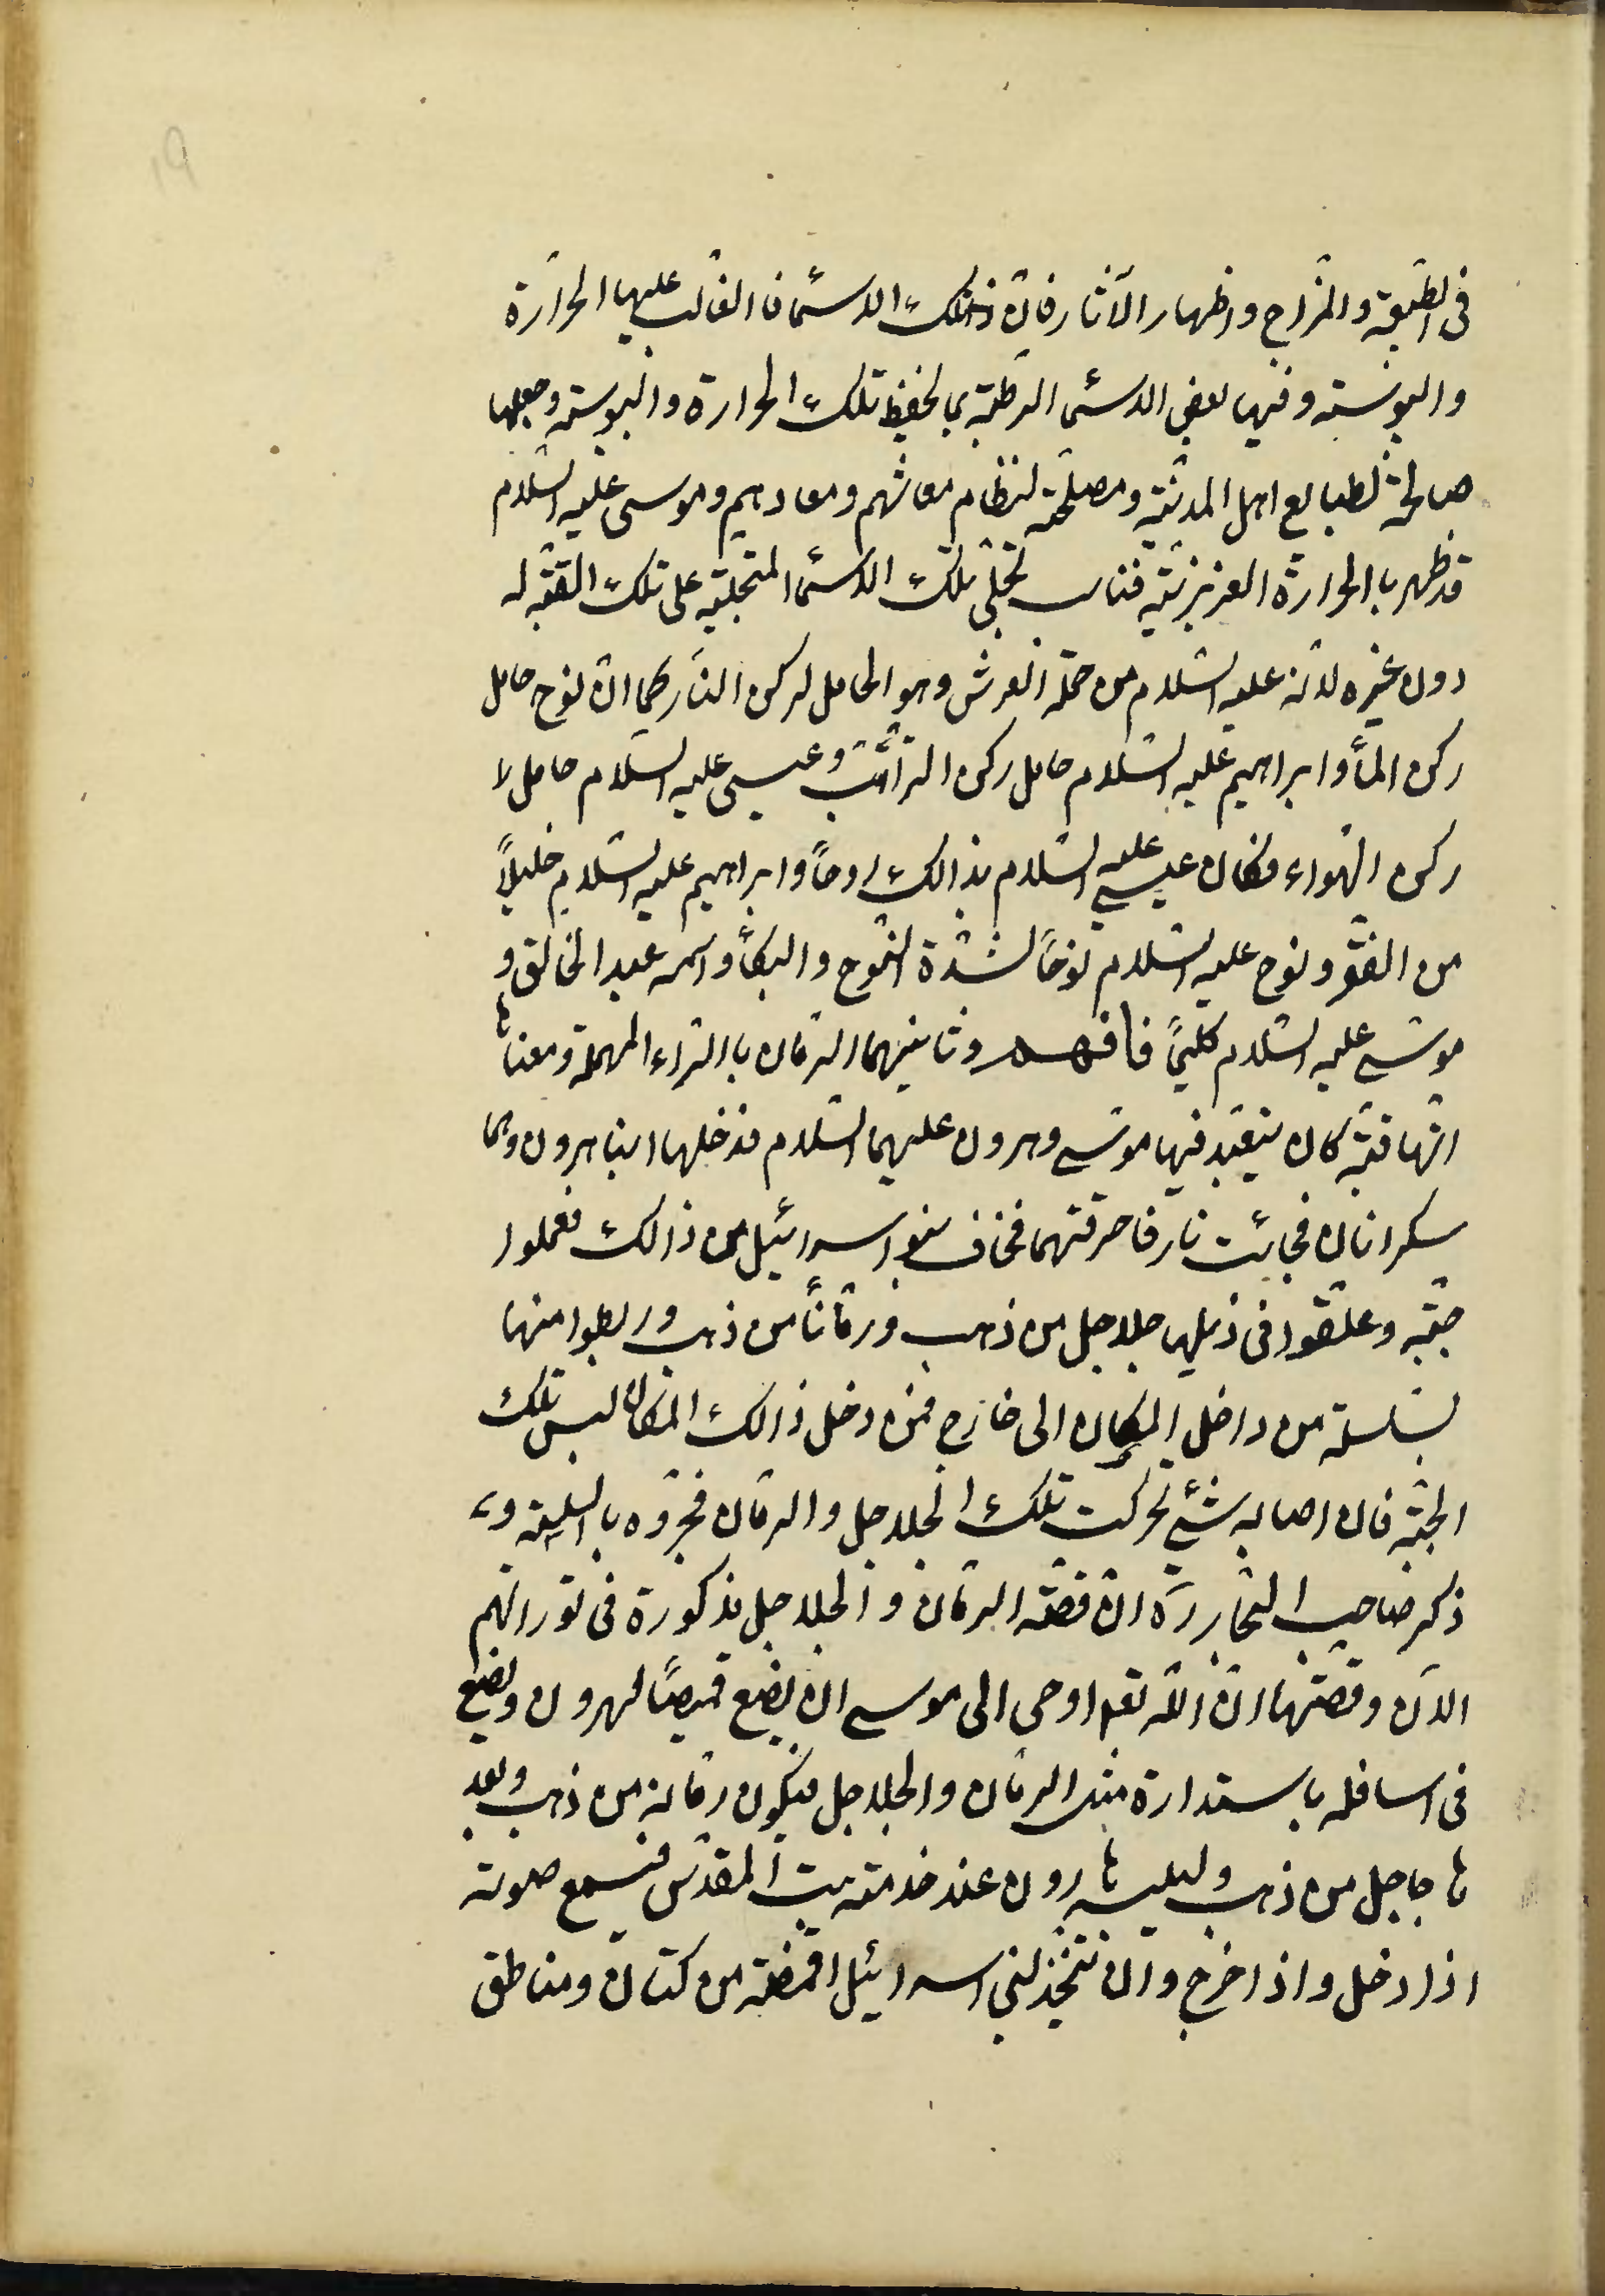 ١٩
فى الطبيعة والمزاج واظهار الآثار فان تلك الاسمآ فالغالب عليها الحرارة
واليبوسة وفيها بعض الاسمآ الرطبة بما يحفظ تلك الحرارة واليبوسة وجعلها
صالحة لطبايع اهل المدينة ومصلحة لنظام معاشهم ومعادهم وموسى عليه السّلام
قد ظهر باالحرارة الغريزيّة فناسب تجلّى تلك الاسمآ المتجلّية على تلك القبّة له
دون غيره لانّه عليه السّلام من حملة العرش وهو الحامل لركن النّار كما انّ نوح حامل
ركن المآء وابراهيم عليه السّلام حامل ركن التّراب وعيسى عليه السّلام حامل لا
ركن الهواء فكان عيسى عليه السّلام بذالك روحاً وابراهيم عليه السّلام خليلاً
من الفقر ونوح عليه السّلام نوحاً لشدّة النّوح والبكآء واسمه عبد الخالق و
موسى عليه السّلام كليماً فافهم وثانيهما الرّمان باالرّاء المهملة ومعناها
انّها قبّة كان يتعبّد فيها موسى وهرون عليهما السّلام فدخلها ابنا هرون وهما
سكرانان فجائت نار فاحرقتهما فخاف بنو اسرائيل من ذالك فعملوا
جبّة وعلّقوا فى ذيلها جلاجل من ذهب ورمّاناً من ذهب وربطوا منها
بسلسلة من داخل المكان الى خارج فمن دخل ذالك المكان لبس تلك
الجبّة فان اصابه شئ تحركت تلك الجلاجل والرمّان فجرّوه بالسلسلة و
ذكر صاحب البحار ره انّ قصّة الرمّان والجلاجل مذكورة فى توراتهم
الآن وقصّتها انّ اللّه تعم اوحى الى موسى ان يضع قميصاً لهرون ويضع
فى اسافله باستدارة مثل الرمّان والجلاجل فيكون رمّانة من ذهب وبعد
ها جاجل من ذهب وليلبسه هارون عند خدمة بيت المقدّس فيسمع صوته
اذا دخل واذا خرج وان تتّخذ لبنى اسرائيل اقمصة من كتان ومناطق